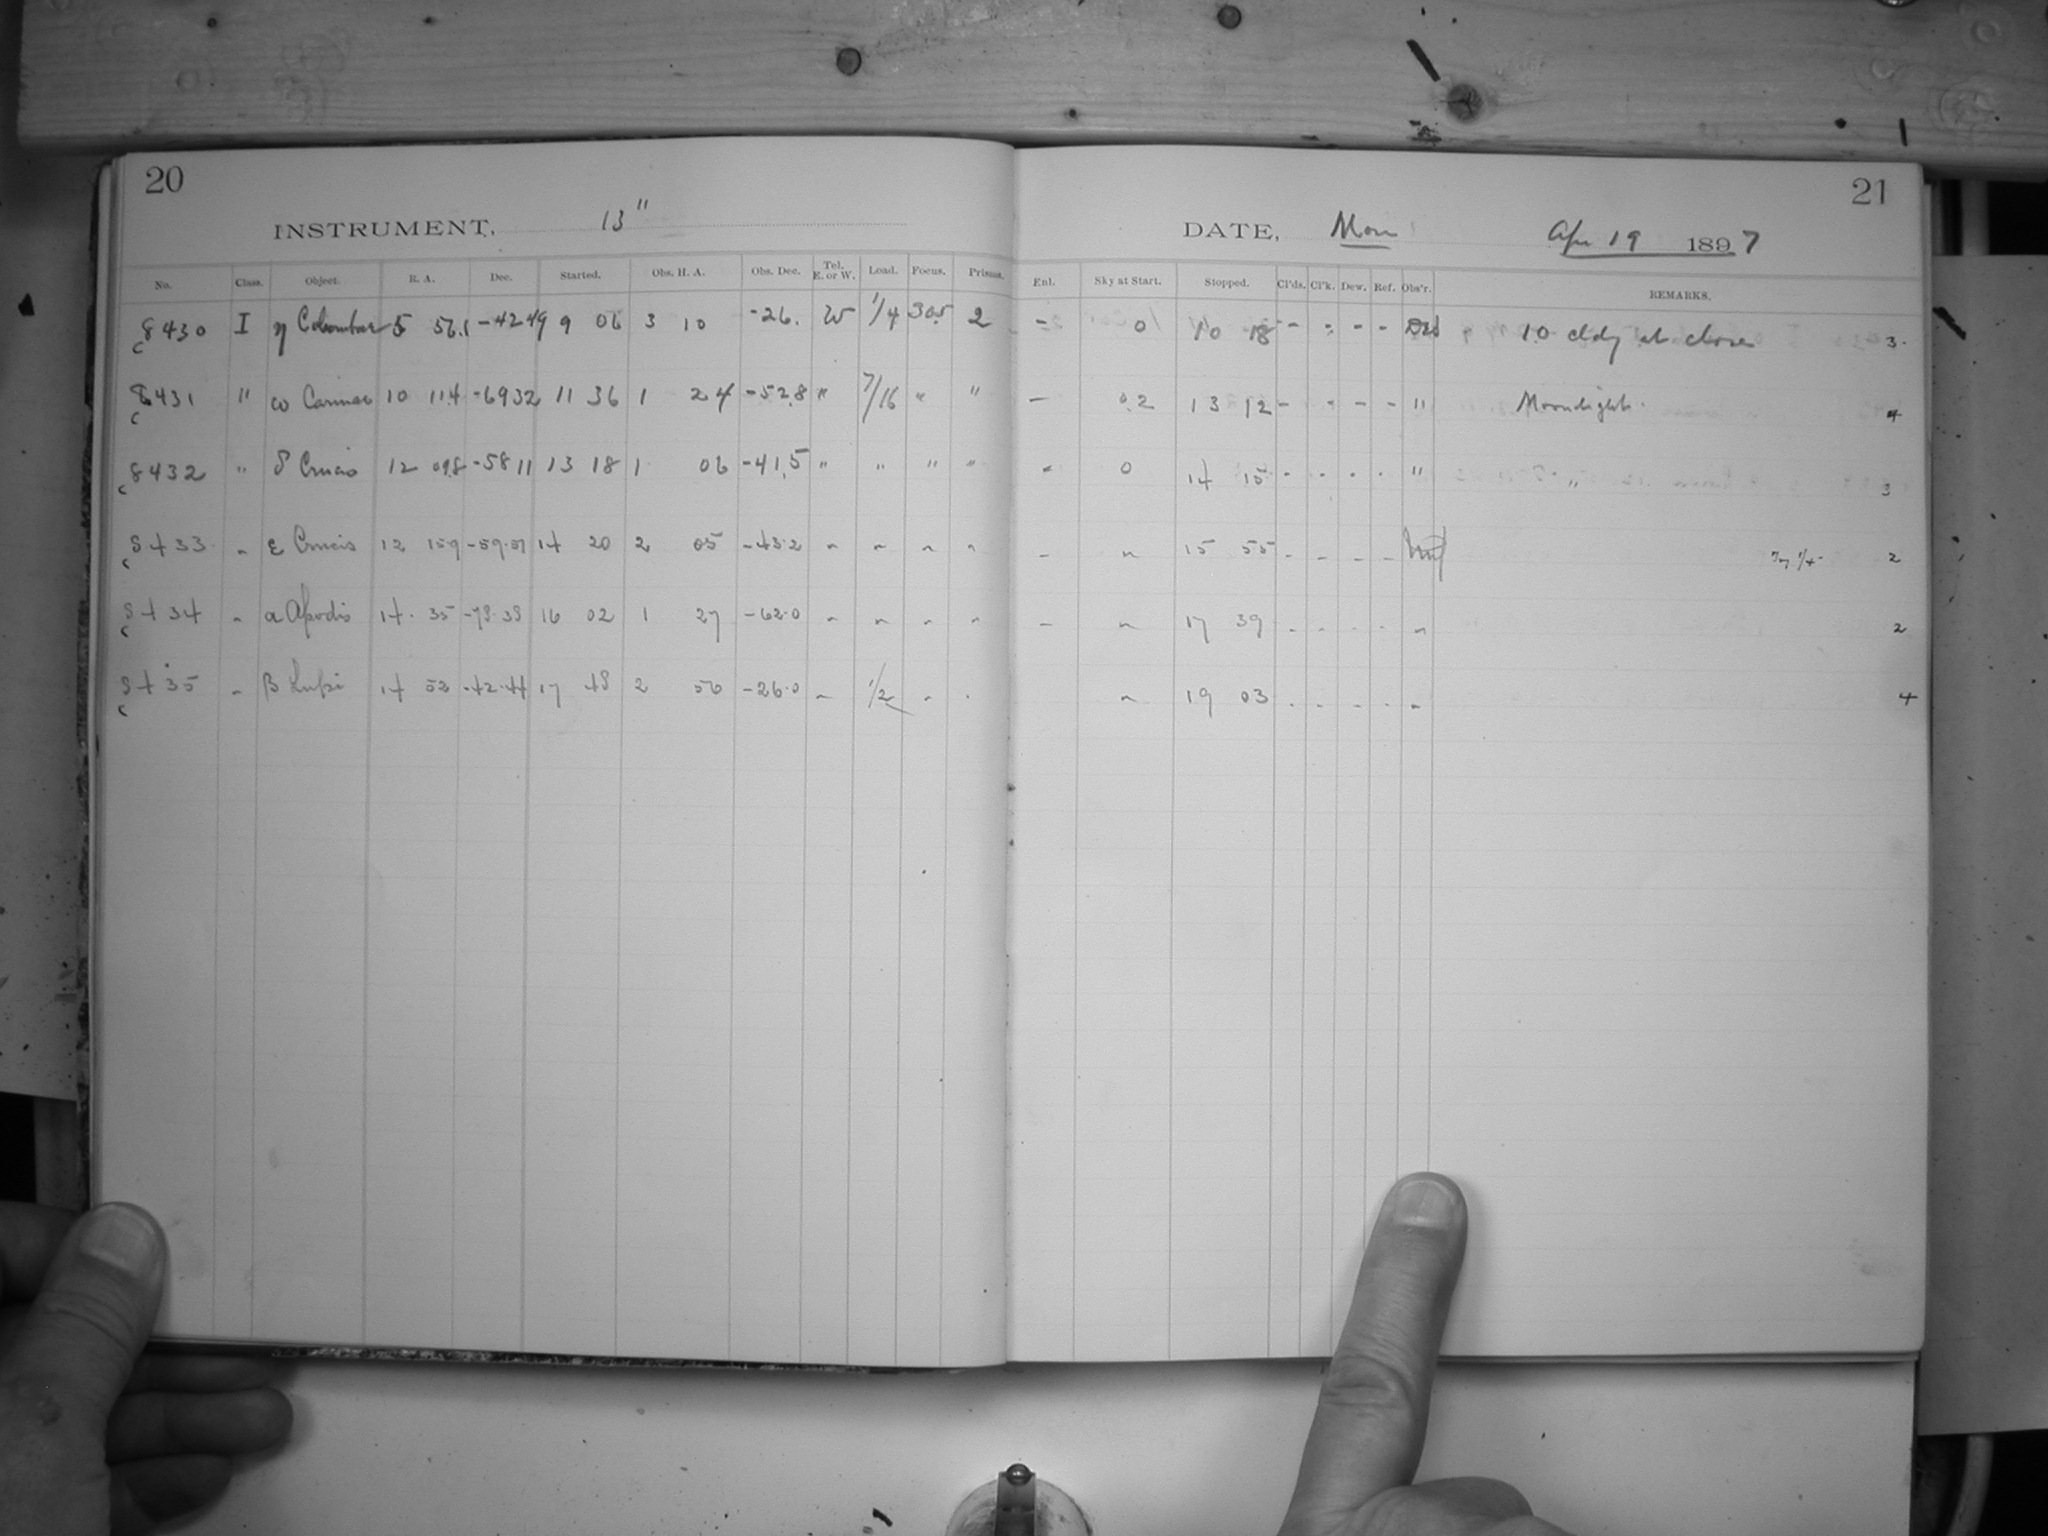 20
INSTRUMENT, 13"
No. Class. Object. R. A. Dec. Started. Obs. H. A. Obs. Dec. Tel. E. or W. Load. Focus. Prisms.
8430 I η Columbae 5 56.1 -42 49 9 06 3 10 -26. W 1/4 30.5 2
8431 " ω Carinae 10 11.4 -69 32 11 36 1 24 -52.8 " 7/16 " "
8432 " δ Crucis 12 09.8 -58 11 13 18 1 06 -41.5 " " " "
8433 " ε Crucis 12 15.9 -59.51 14 20 2 05 -43.2 " " " "
8434 " α Apodis 14. 35 -78.38 16 02 1 27 -62.0 " " " "
8435 " β Lupi 14 52 -42.44 17 48 2 56 -26.0 " 1/2 " "
21
DATE, Mon Apr 19 1897
Enl. Sky at Start. Stopped. Cl'ds. Cl'k. Dew. Ref. Obs'r. REMARKS.
- 0 10 18 - - - - 10 cldy at close 3
- 0.2 13 12 - - - - " Moonlight. 4
- 0 14 15 - - - - " " 3
- " 15 55 - - - - 1/4 2
- " 17 39 - - - - " 2
" 19 03 - - - - " 4